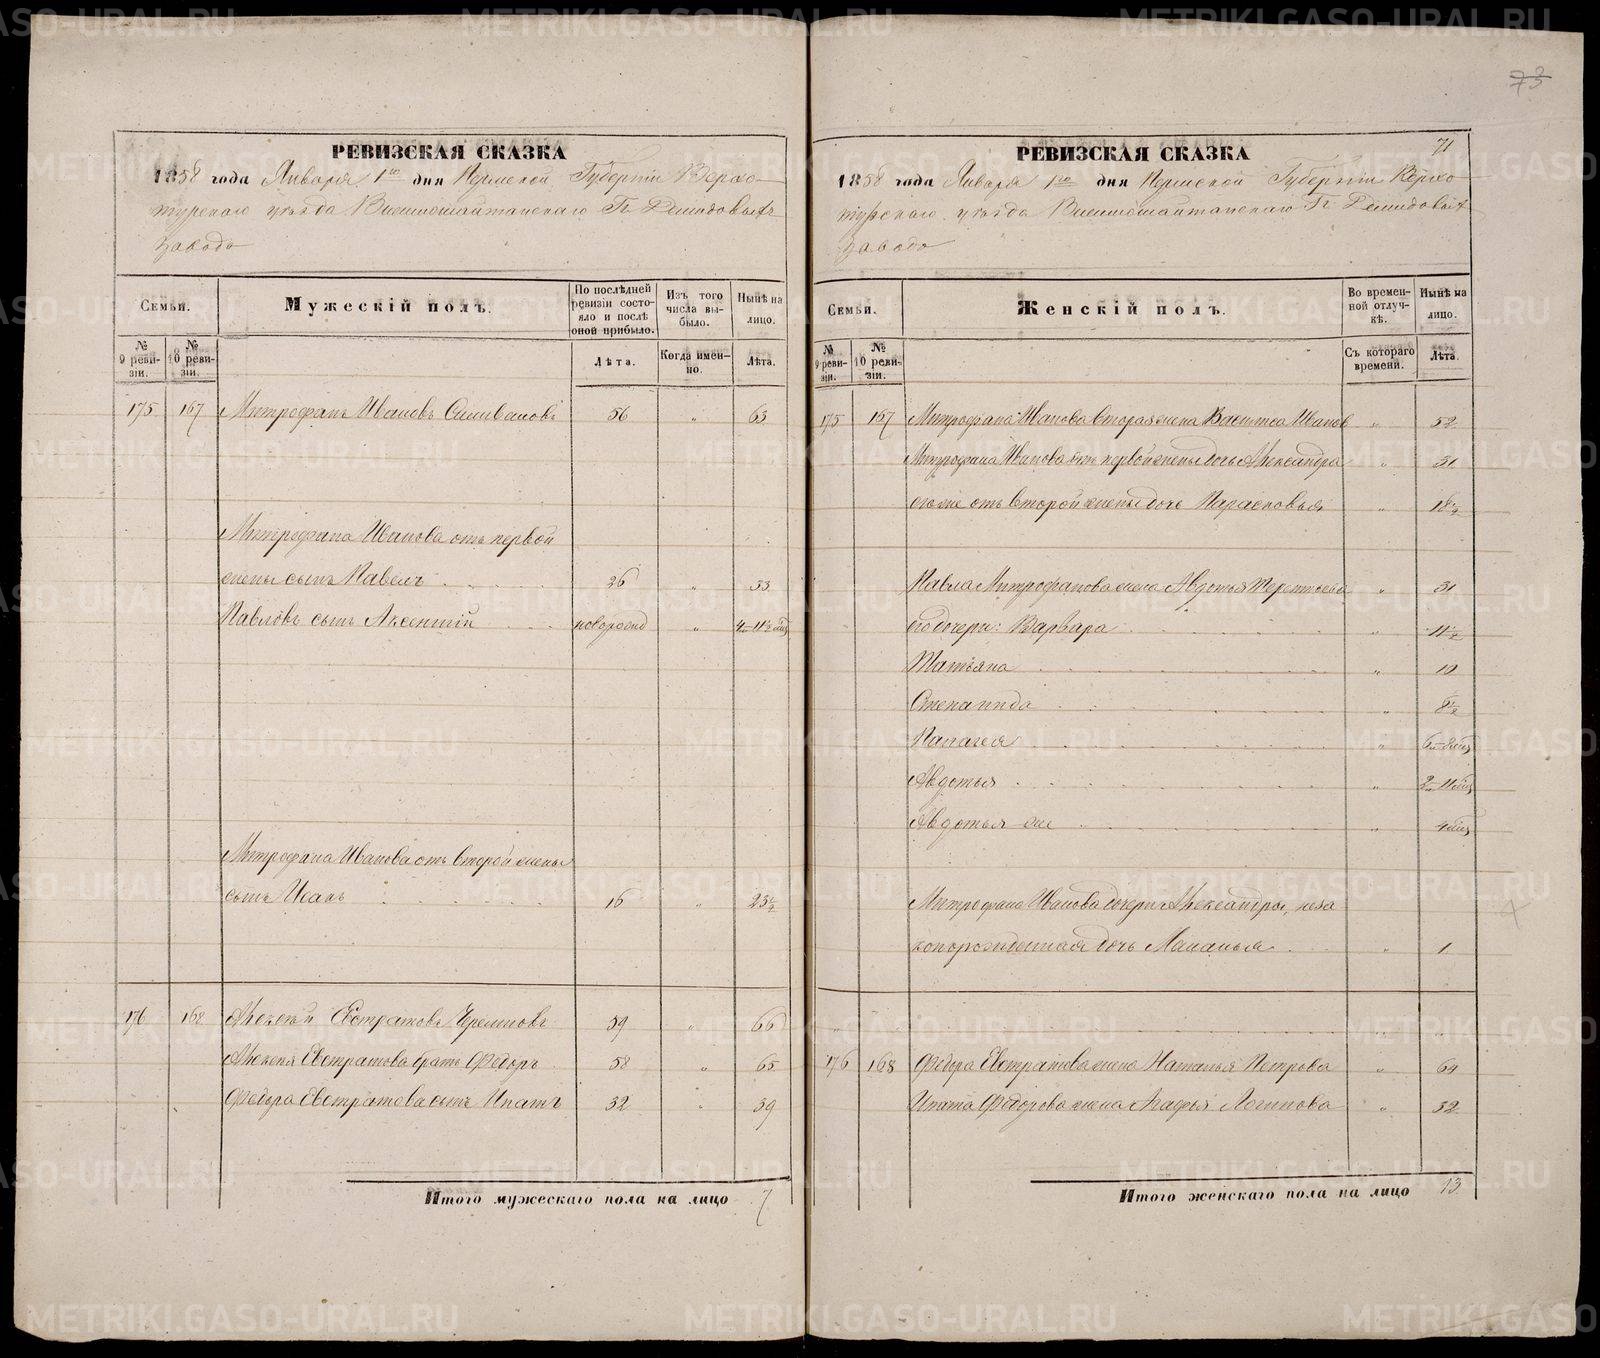 73
РЕВИЗСКАЯ СКАЗКА
1858 года Января 1го дня Пермской Губерніи Верхо-
турскаго уѣзда Висимошайтанскаго Гг. Демидовыхъ
завода
Семьи.
Мужескій полъ.
По послѣдней ревизіи состо-
яло и послѣ оной прибыло.
Изъ того числа вы-
было.
Нынѣ на лицо.
№ 9 реви-
зіи.
№ 10 реви-
зіи.
Лѣта.
Когда имен-
но.
Лѣта.
175 167 Митрофанъ Ивановъ Селивановъ 56 „ 63
Митрофана Иванова отъ первой
жены сынъ Павелъ 26 „ 33
Павловъ сынъ Аксентій новорожд „ 4-11½ мѣц
Митрофана Иванова отъ второй жены
сынъ Исакъ 16 „ 23½
176 168 Алексѣй Евстратовъ Черемновъ 59 „ 66
Алексѣя Евстратова братъ Федоръ 58 „ 65
Федора Евстратова сынъ Ипатъ 32 „ 39
Итого мужескаго пола на лицо 7
71
РЕВИЗСКАЯ СКАЗКА
1858 года Января 1го дня Пермской Губерніи Верхо
турскаго уѣзда Висимошайтанскаго Гг Демидовыхъ
завода
Семьи.
Женскій полъ.
Во времен-
ной отлуч-
кѣ.
Нынѣ на лицо.
№ 9 реви-
зіи.
№ 10 реви-
зіи.
Съ котораго времени.
Лѣта.
175 167 Митрофана Иванова вторая жена Васи­лиса Иванов „ 52
Митрофана Иванова отъ первой жены дочь Александра „ 31
его же отъ второй жены дочь Парасковья „ 18½
Павла Митрофанова жена Авдотья Терентьева „ 31
его дочери: Варвара „ 11½
Татьяна „ 10
Степанида „ 8½
Палагея „ 6-8 мѣц
Авдотья „ 2-11 мѣц
Авдотья же „ 4 мѣц
Митрофана Иванова дочери Александры, неза
конорожденная дочь Маланья „ 1
„ „ „
176 168 Федора Евстратова жена Наталья Петрова „ 64
Ипата Федорова жена Агафья Логинова „ 32
Итого женскаго пола на лицо 13
METRIKI.GASO-URAL.RU